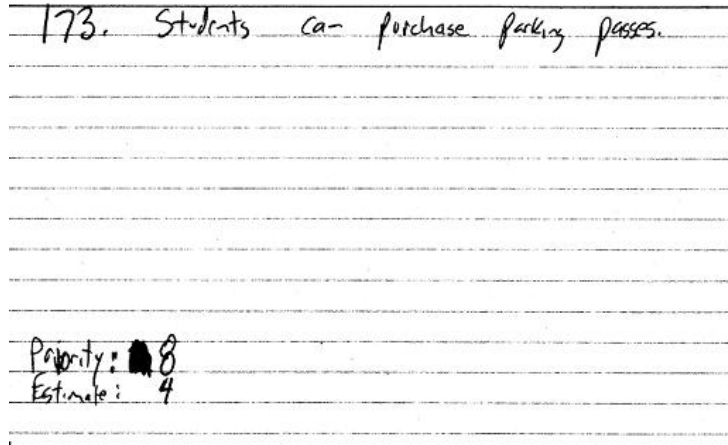 173. Students can purchase parking passes.
Priority: 8
Estimate: 4